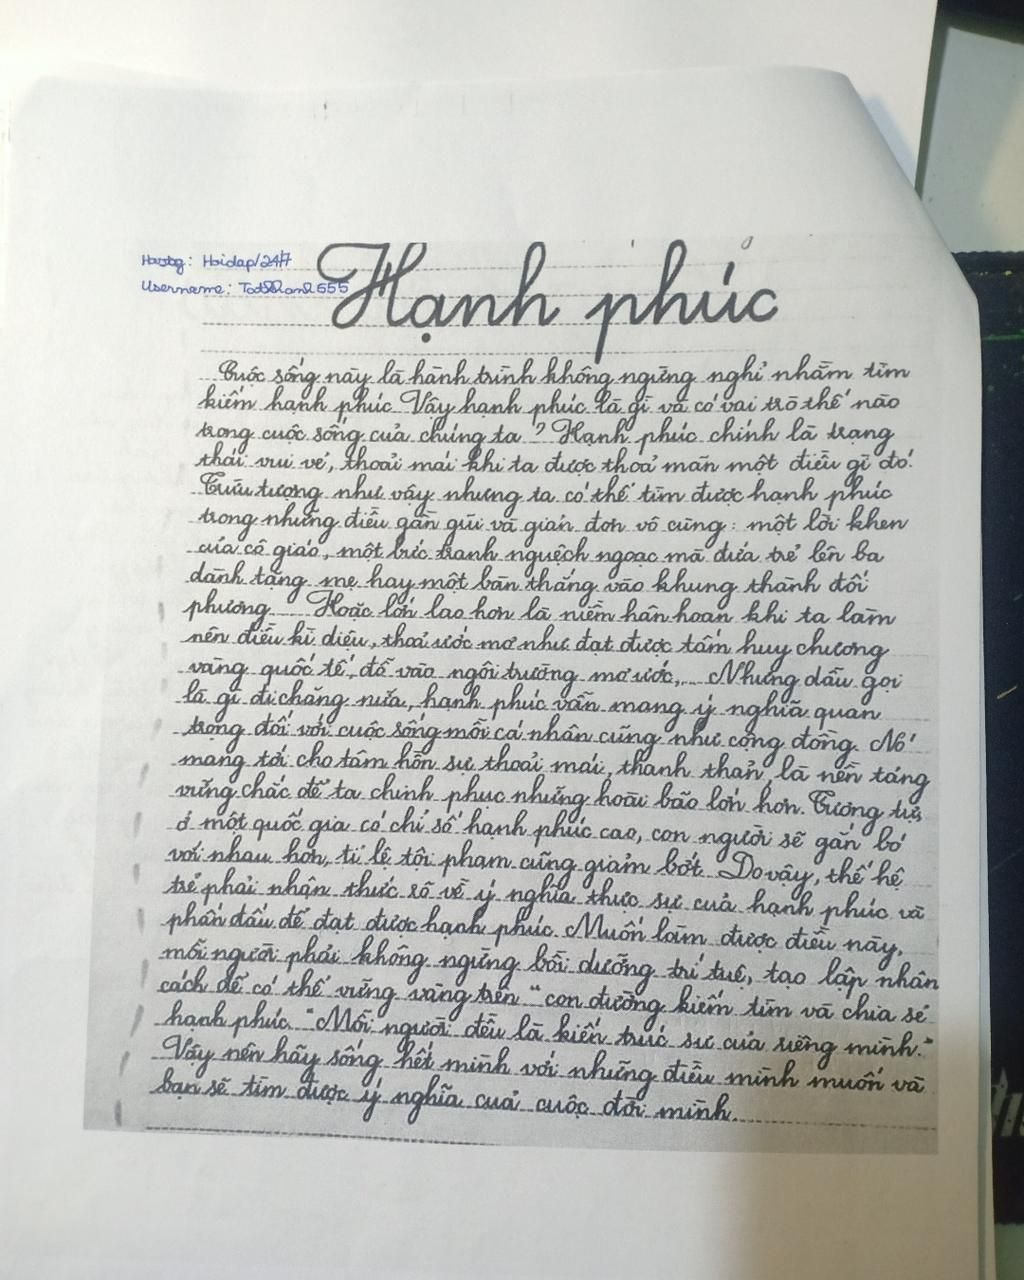 Hạnh phúc
Hoidap/247
Username:
Cuộc sống này là hành trình không ngừng nghỉ nhằm tìm
kiếm hạnh phúc. Vậy hạnh phúc là gì và có vai trò thế nào
trong cuộc sống của chúng ta? Hạnh phúc chính là trạng
thái vui vẻ, thoải mái khi ta được thoả mãn một điều gì đó.
Trừu tượng như vậy nhưng ta có thể tìm được hạnh phúc
trong những điều gần gũi và giản đơn vô cùng: một lời khen
của cô giáo, một bức tranh nguệch ngoạc mà đứa trẻ lên ba
dành tặng mẹ hay một bàn thắng vào khung thành đối
phương... Hoặc lớn lao hơn là niềm hân hoan khi ta làm
nên điều kì diệu, thoả ước mơ như đạt được tấm huy chương
vàng quốc tế, đỗ vào ngôi trường mơ ước,... Nhưng dẫu gọi
là gì đi chăng nữa, hạnh phúc vẫn mang ý nghĩa quan
trọng đối với cuộc sống mỗi cá nhân cũng như cộng đồng. Nó
mang tới cho tâm hồn sự thoải mái, thanh thản, là nền tảng
vững chắc để ta chinh phục những hoài bão lớn hơn. Tương tự,
ở một quốc gia có chỉ số hạnh phúc cao, con người sẽ gắn bó
với nhau hơn, tỉ lệ tội phạm cũng giảm bớt. Do vậy, thế hệ
trẻ phải nhận thức rõ về ý nghĩa thực sự của hạnh phúc và
phấn đấu để đạt được hạnh phúc. Muốn làm được điều này,
mỗi người phải không ngừng bồi dưỡng trí tuệ, tạo lập nhân
cách để có thể vững vàng trên "con đường kiếm tìm và chia sẻ
hạnh phúc. "Mỗi người đều là kiến trúc sư của riêng mình."
Vậy nên hãy sống hết mình với những điều mình muốn và
bạn sẽ tìm được ý nghĩa cuả cuộc đời mình.